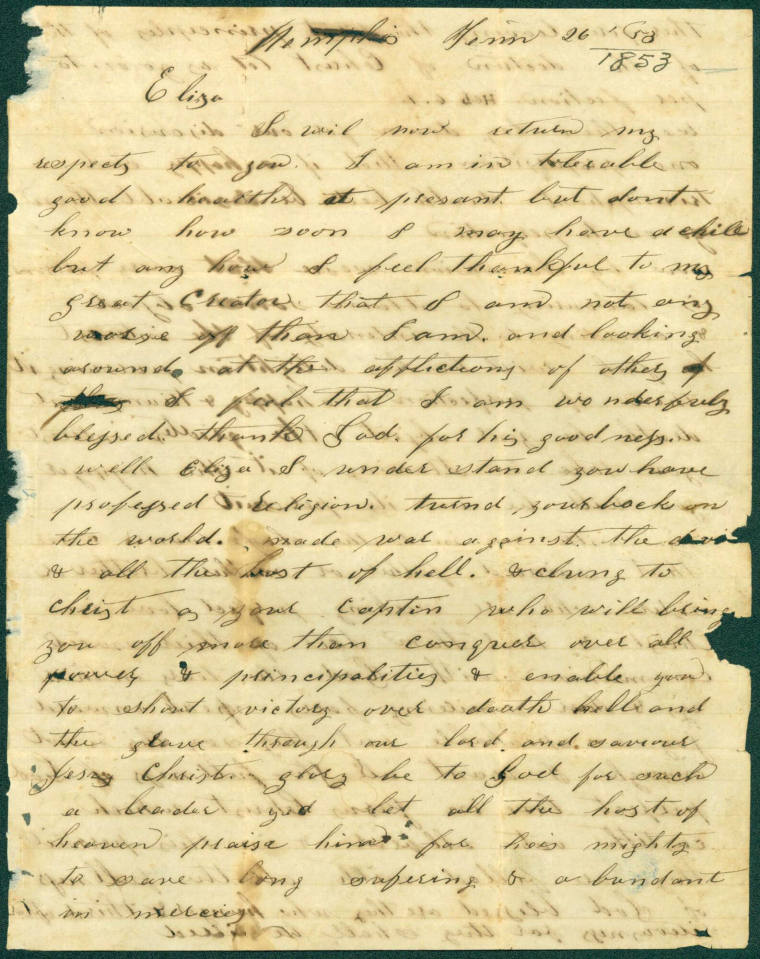 Memphis Tenn 26th 53
1853
Eliza
I wil now return my
respects to you. I am in tolerable
good health at presant but dont
know how soon I may have a chill
but any how I feel thankful to my
great Creator that I am not any
worse off than I am. and looking
around at the afflictions of others
I feel that I am wonderfuly
blessed. thank God. for his goodness.
well Eliza I under stand you have
professed religion. turnd your back on
the world. made war against the
& all the host of hell. & clung to
Christ as your Captin who will bring
you off more than conquer over all
powers & principalities & enable you
to shout victory over death hell and
the grave through our lord and saviour
Jesus Christ. glory be to God for such
a leader let all the host of
heaven praise him for he is mighty
to save long sufering & a bundant
in mercies